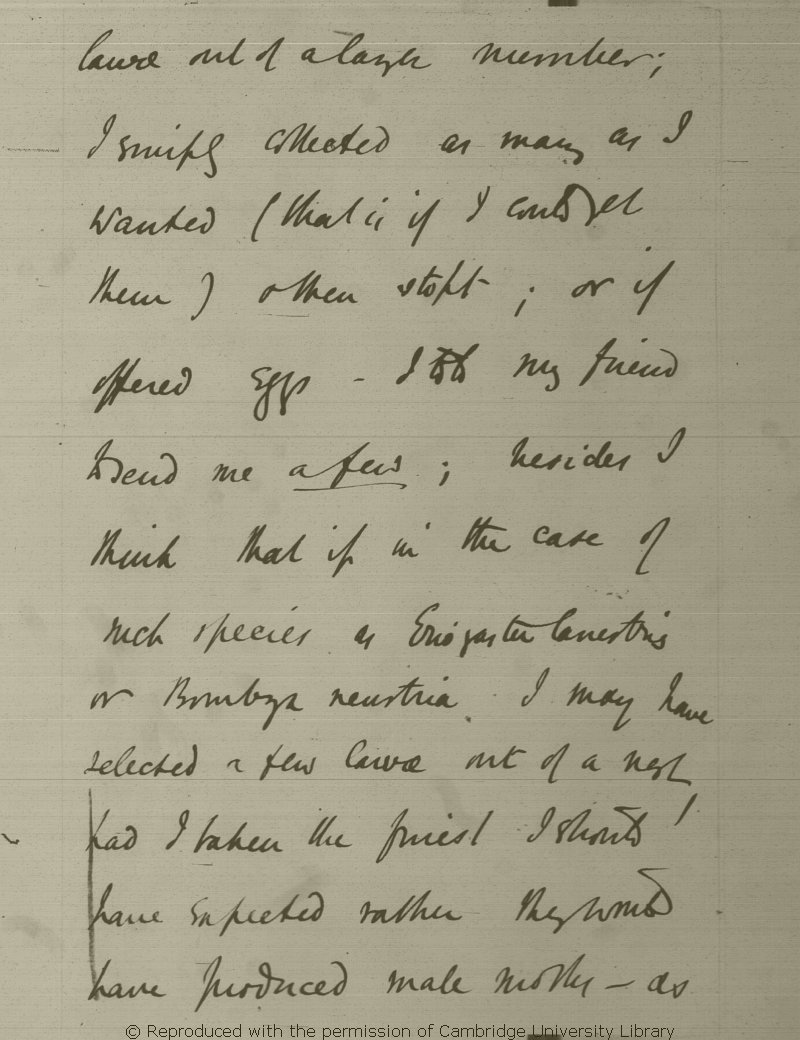 larvæ out of a larger number;
I simply collected as many as I
wanted (that is if I could get
them) & then stopt; or if
offered Eggs – I told my friend
to send me a few; besides I
think that if in the case of
such species as Eriogaster lanestris
or Bombyx neustria. I may have
selected a few larvæ out of a nest
had I taken the finest I should
have expected rather they would
have produced male moths – as
© Reproduced with the permission of Cambridge University Library